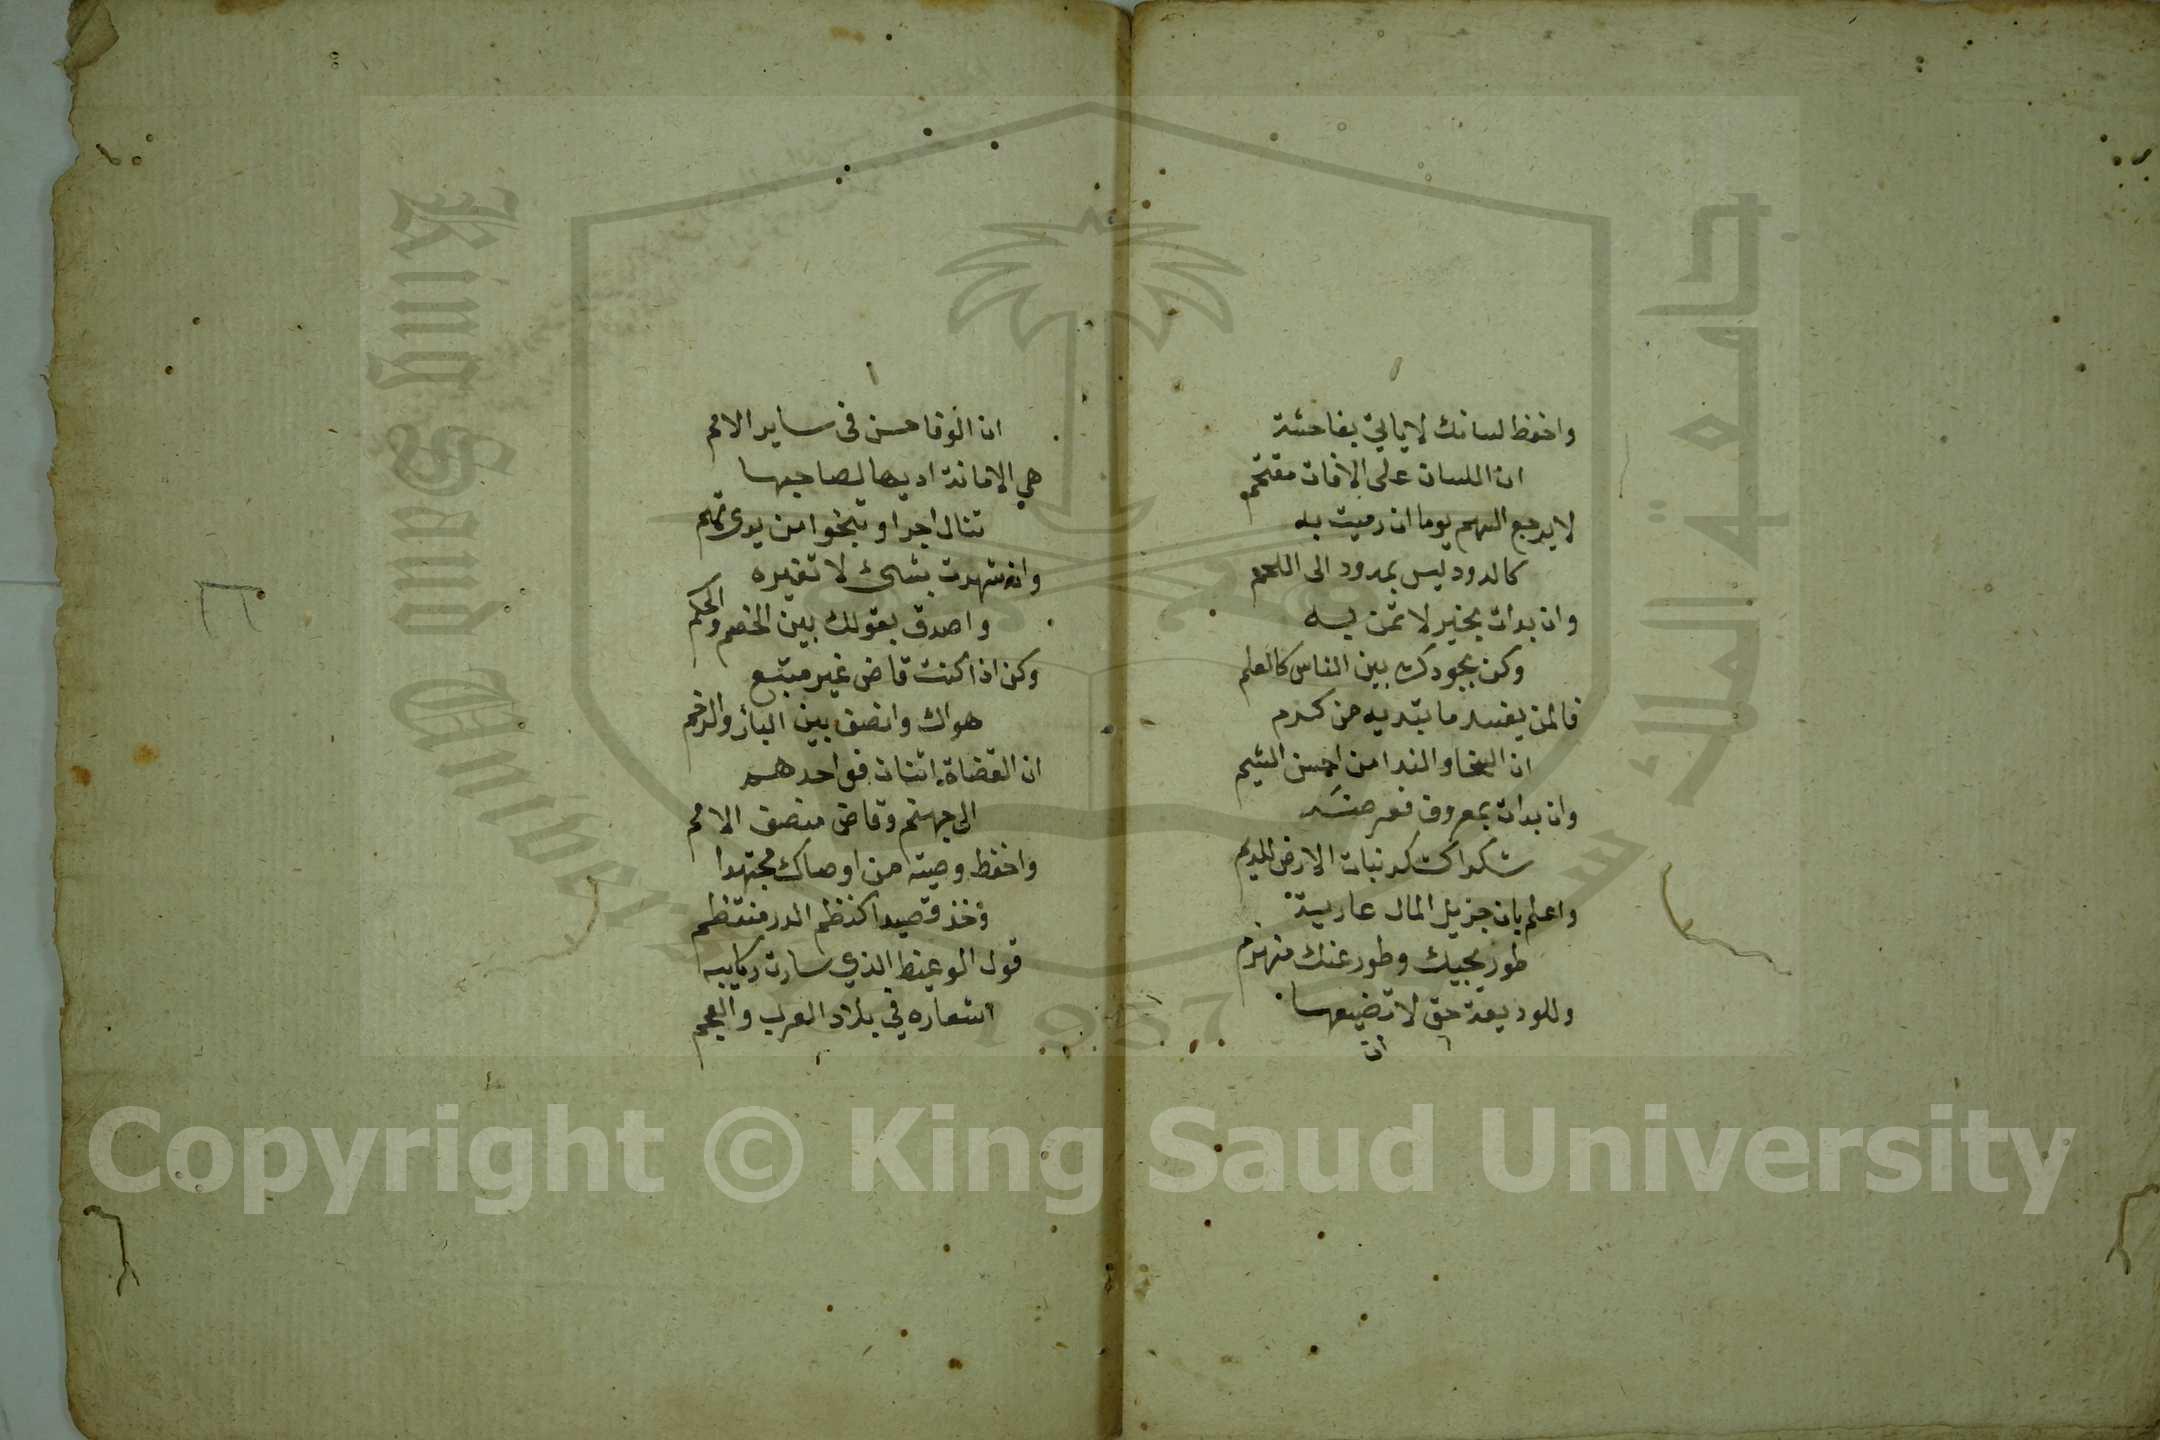 واحفظ لسانك لا يأتي بفاحشة
ان اللسان على الافات مقتحم
لا يرجع السهم يوما ان رميت به
كالدود ليس بمردود الى اللحم
وان بدات بخير لا تمن به
وكن بجودك بين الناس كالعلم
فالمن يفسد ما بتديه من كرم
ان السخا والندا من احسن الشيم
وان بدات بمعروف فعرصنه
شكرا كشكر نبات الارض للديم
واعلم بان جزيل المال عارية
طور يجيك وطور عنك منهزم
وللوديعة حق لا تضيعها
ان
ان الوفا حسن في ساير الامم
هي الامانة اديها لصاحبها
تنال اجرا وتنجوا من يوى
وان شهدت بشئ لا تغيره
واصدق بقولك بين الخصم والحكم
وكن اذا كنت قاض غير متبع
هواك وانصف بين الباز والرخم
ان القضاة اثنان فواحدهم
الى جهنم وقاض منصف الامم
واحفظ وصية من اوصاك مجتهدا
وخذ قصيدا كنظم الدر منتظم
قول الوعيظ الذي سارت ركايبه
اشعاره في بلاد العرب والعجم
King Saud University
جامعة الملك سعود
1957
Copyright © King Saud University